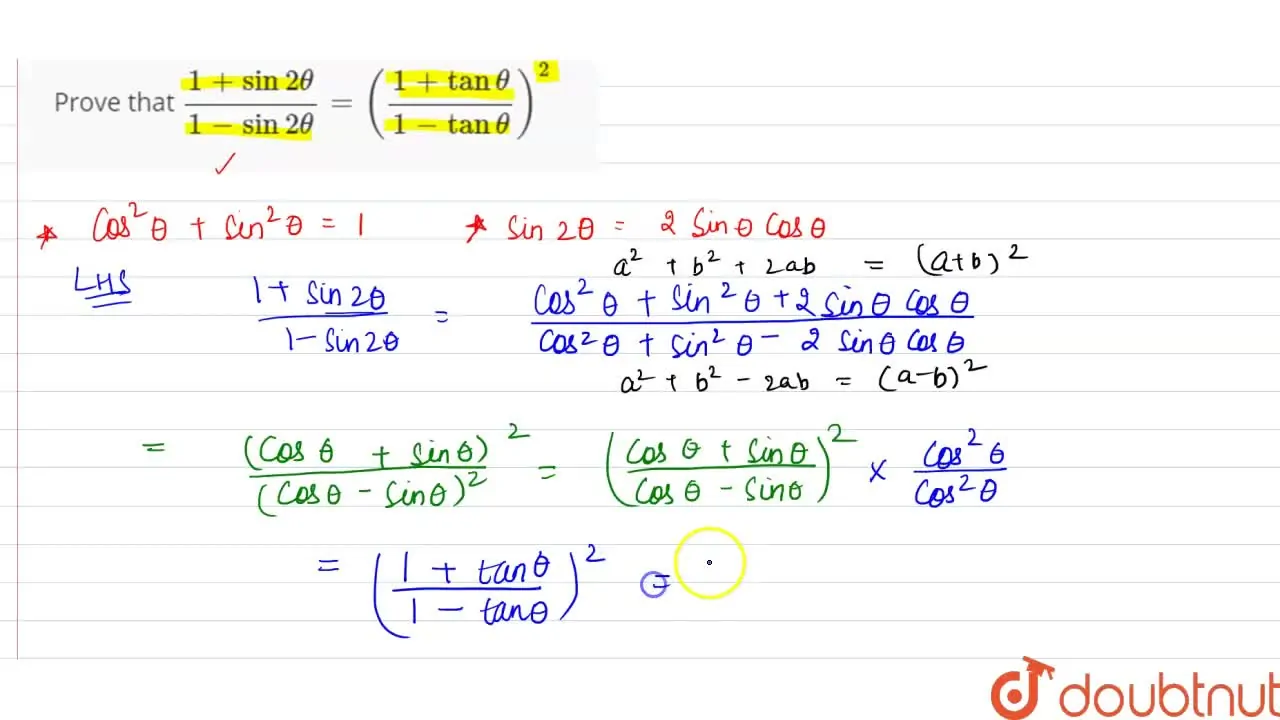 Prove that (1 + sin 2θ)/(1 − sin 2θ) = ((1 + tan θ)/(1 − tan θ))²
✓
* Cos²θ + Sin²θ = 1 * Sin 2θ = 2 Sin θ Cos θ
a² + b² + 2ab = (a+b)²
LHS (1 + Sin 2θ)/(1 − Sin 2θ) = (Cos²θ + Sin²θ + 2 Sin θ Cos θ)/(Cos²θ + Sin²θ − 2 Sin θ Cos θ)
a² + b² − 2ab = (a−b)²
= (Cos θ + Sin θ)²/(Cos θ − Sin θ)² = ((Cos θ + Sin θ)/(Cos θ − Sin θ))² × Cos²θ/Cos²θ
= ((1 + tan θ)/(1 − tan θ))² =
doubtnut